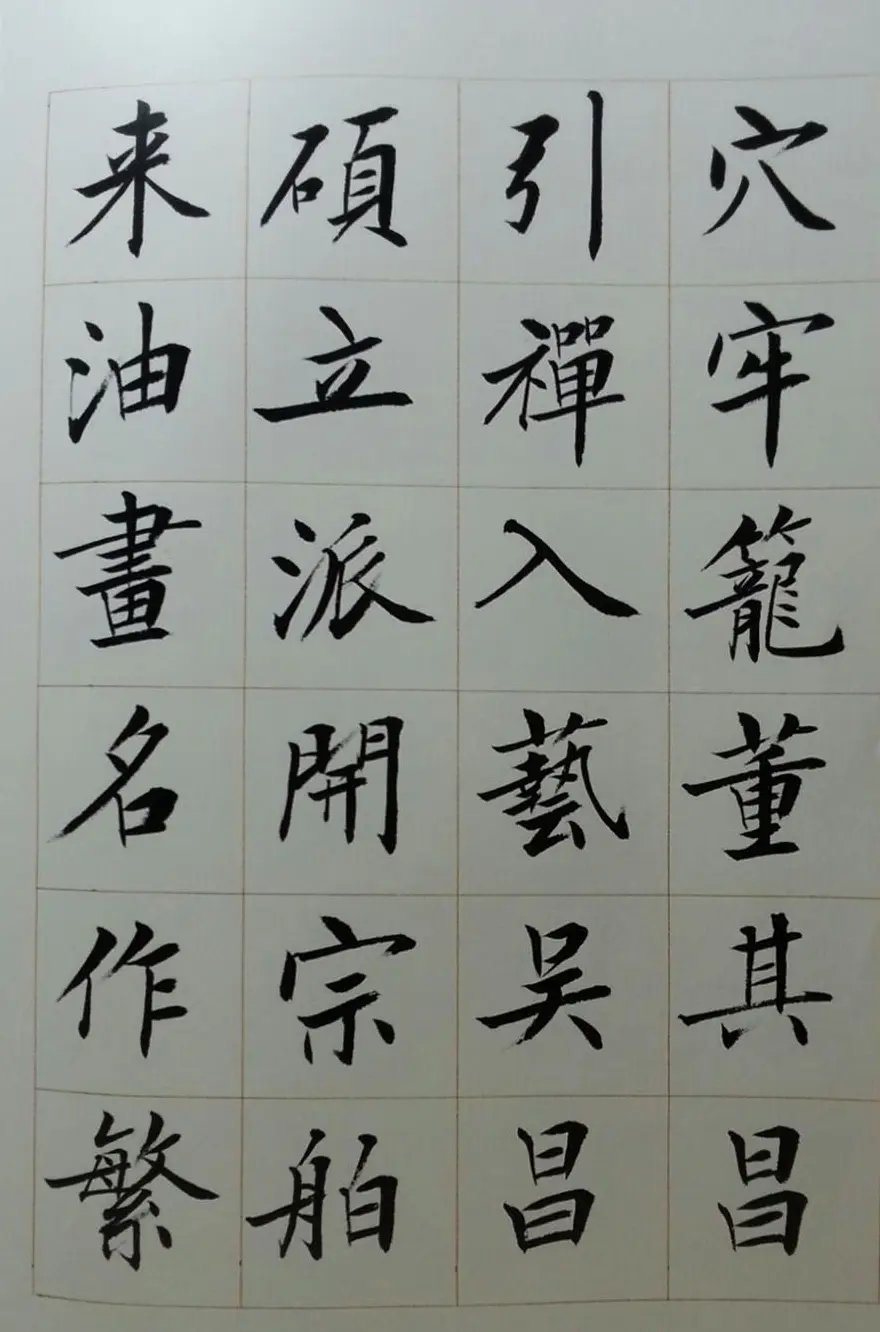 穴牢籠董其昌
引禪入藝吴昌
碩立派開宗舶
来油畫名作繁